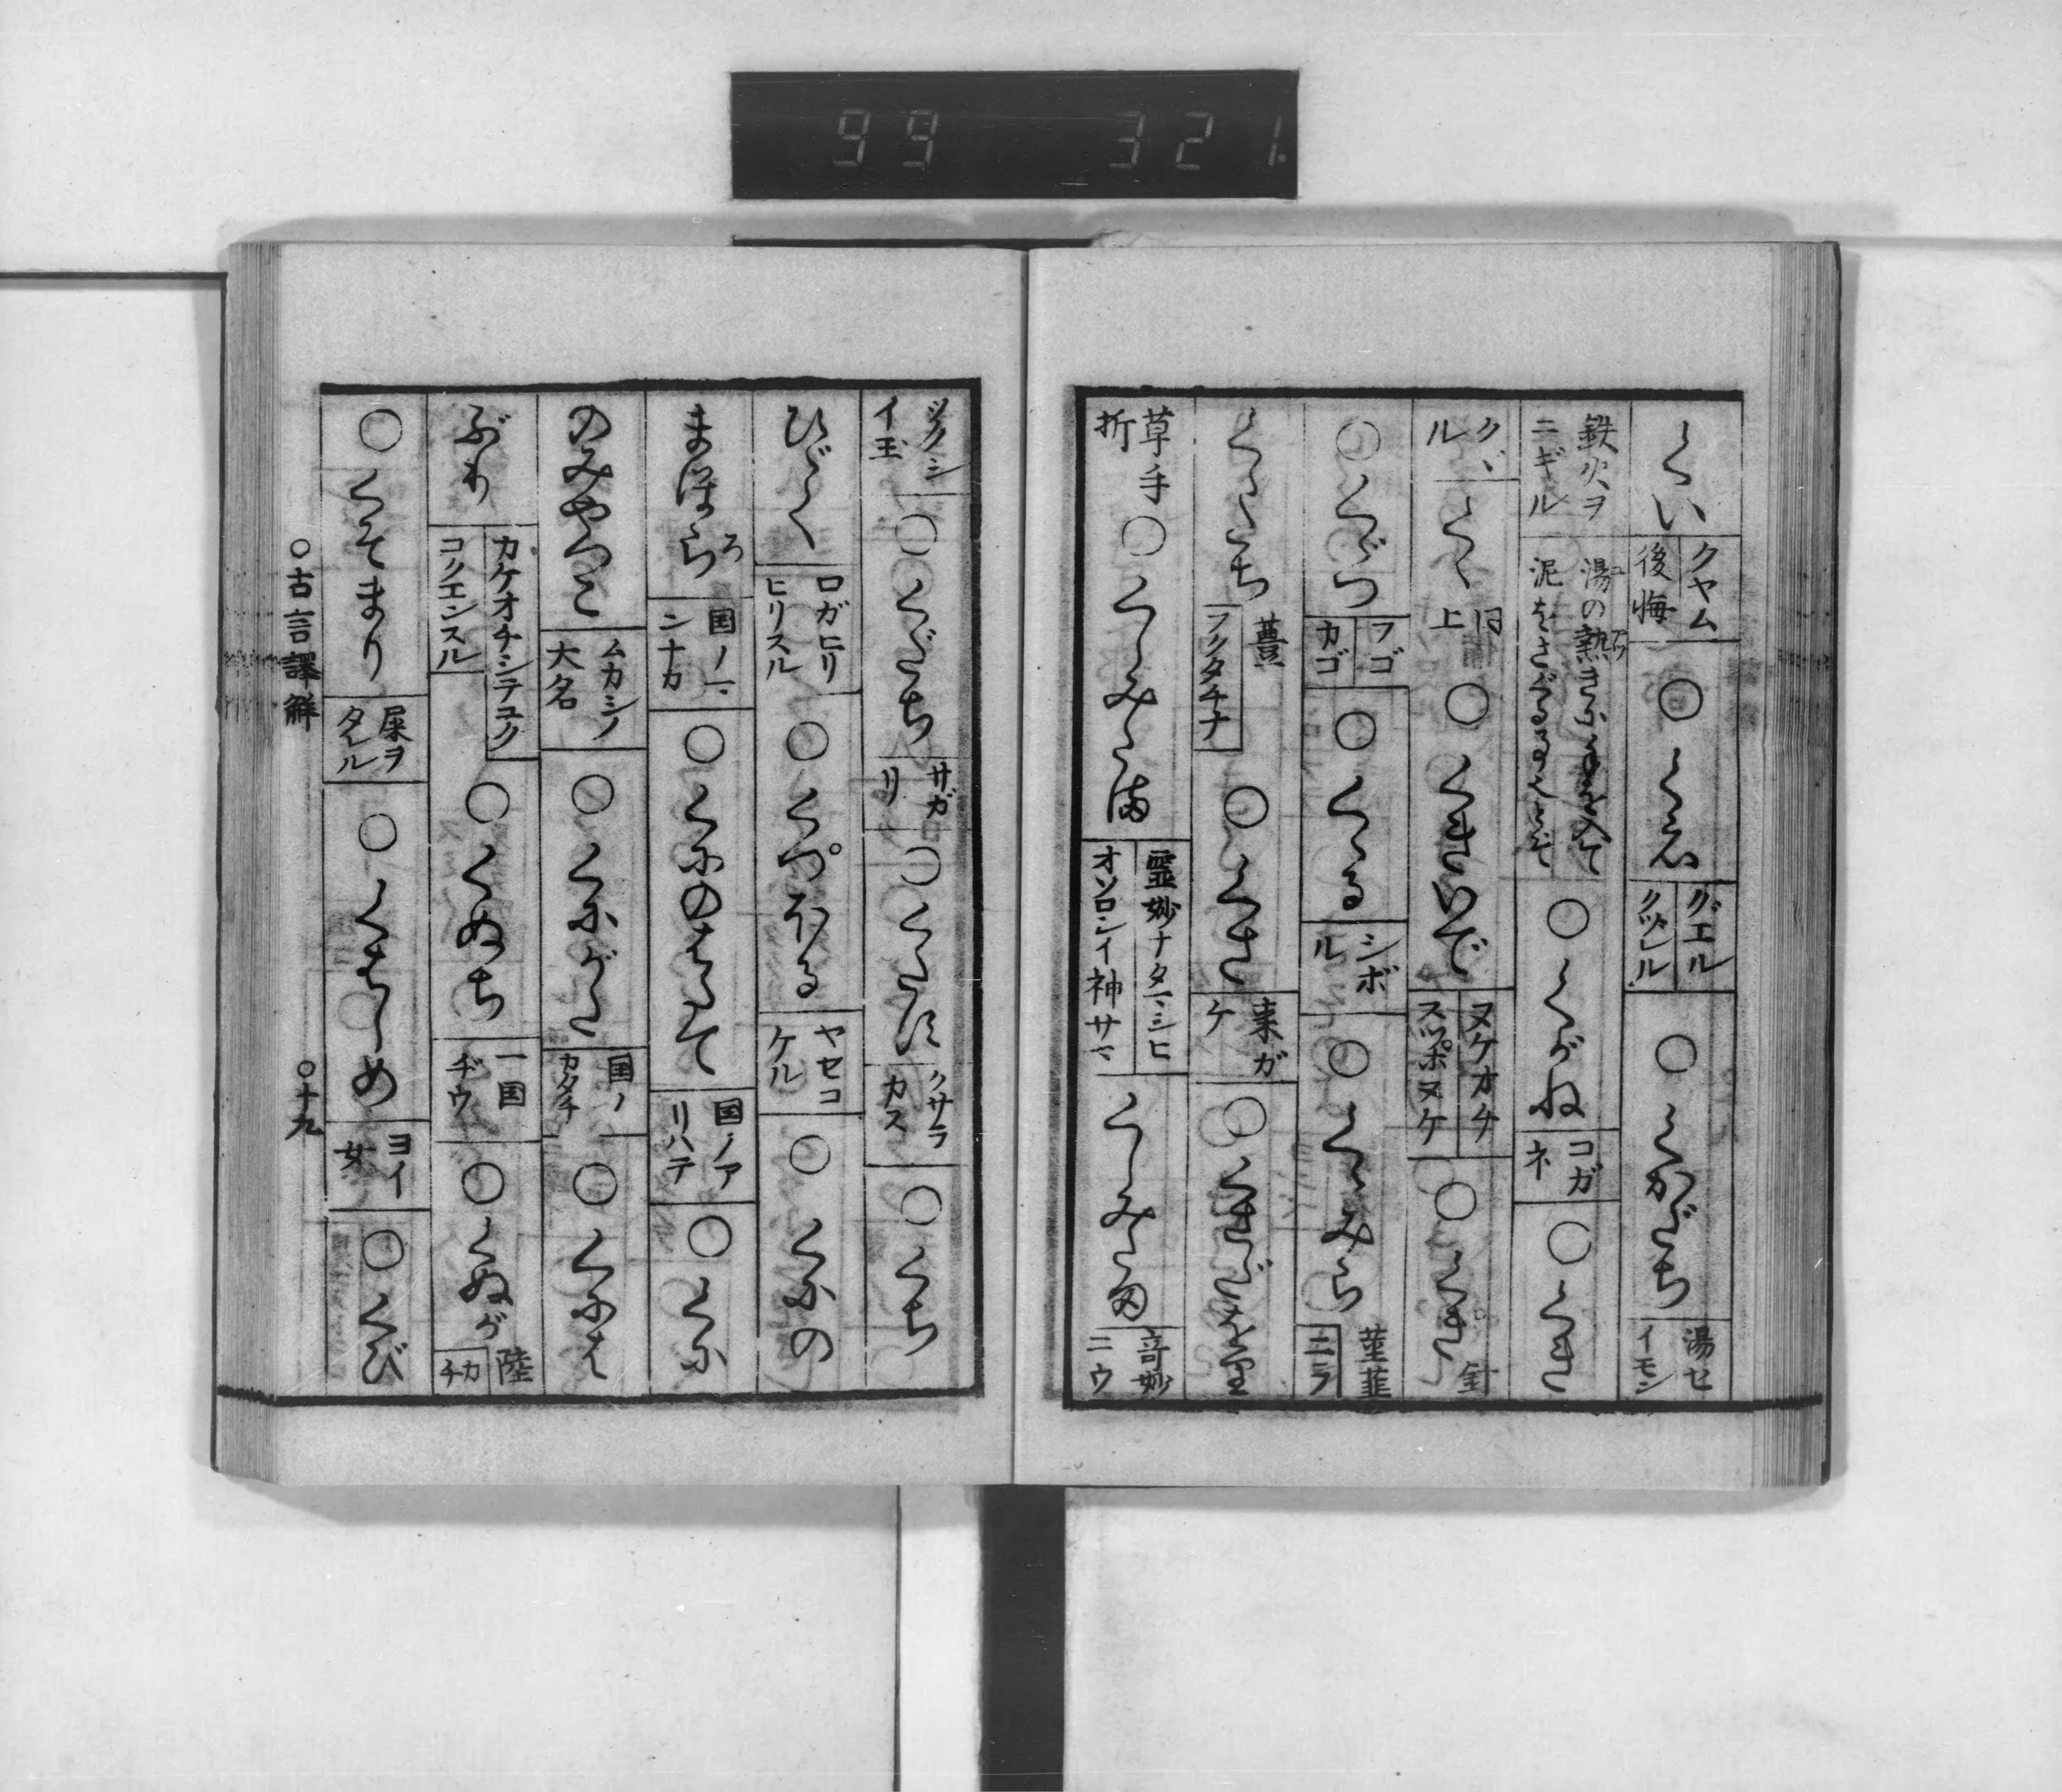 99 321.
くい クヤム 後悔 ○くゑ グエル クヅレル ○くかだち 湯セイモン
鉄火ヲニギル 湯の熱き 泥をさぐる ○くがね コガネ ○くき
クヾル くゝ 同上 ○くきいで ヌケオチ スッポヌケ ○くぎ 針
○くゞつ フゴ カゴ ○くゝる シボル ○くゝみら 菫韮 ニラ
くゝたち 薹 フクタチナ ○くさ 来ガケ ○くさ
草手折 ○くしみたま 霊妙ナタマシヒ オソロシイ神サマ くしみたま 奇妙ニウ
ツクシイ玉 ○くだち サガリ ○くたす クサラカス ○くち
ひゞく 口ガヒリヒリスル ○くづほる ヤセコケル ○くにの
まほらろ 国ノマンナカ ○くにのはたて 国ノアリハテ ○くに
のみやつこ ムカシノ大名 ○くにがた 国ノカタチ ○くには
ぶり カケオチシテユク コクエンスル ○くぬち 一国ヂウ ○くぬが 陸 カチ
○くそまり 屎ヲタレル ○くはしめ ヨイ女 ○くび
○古言譯解 ○十九